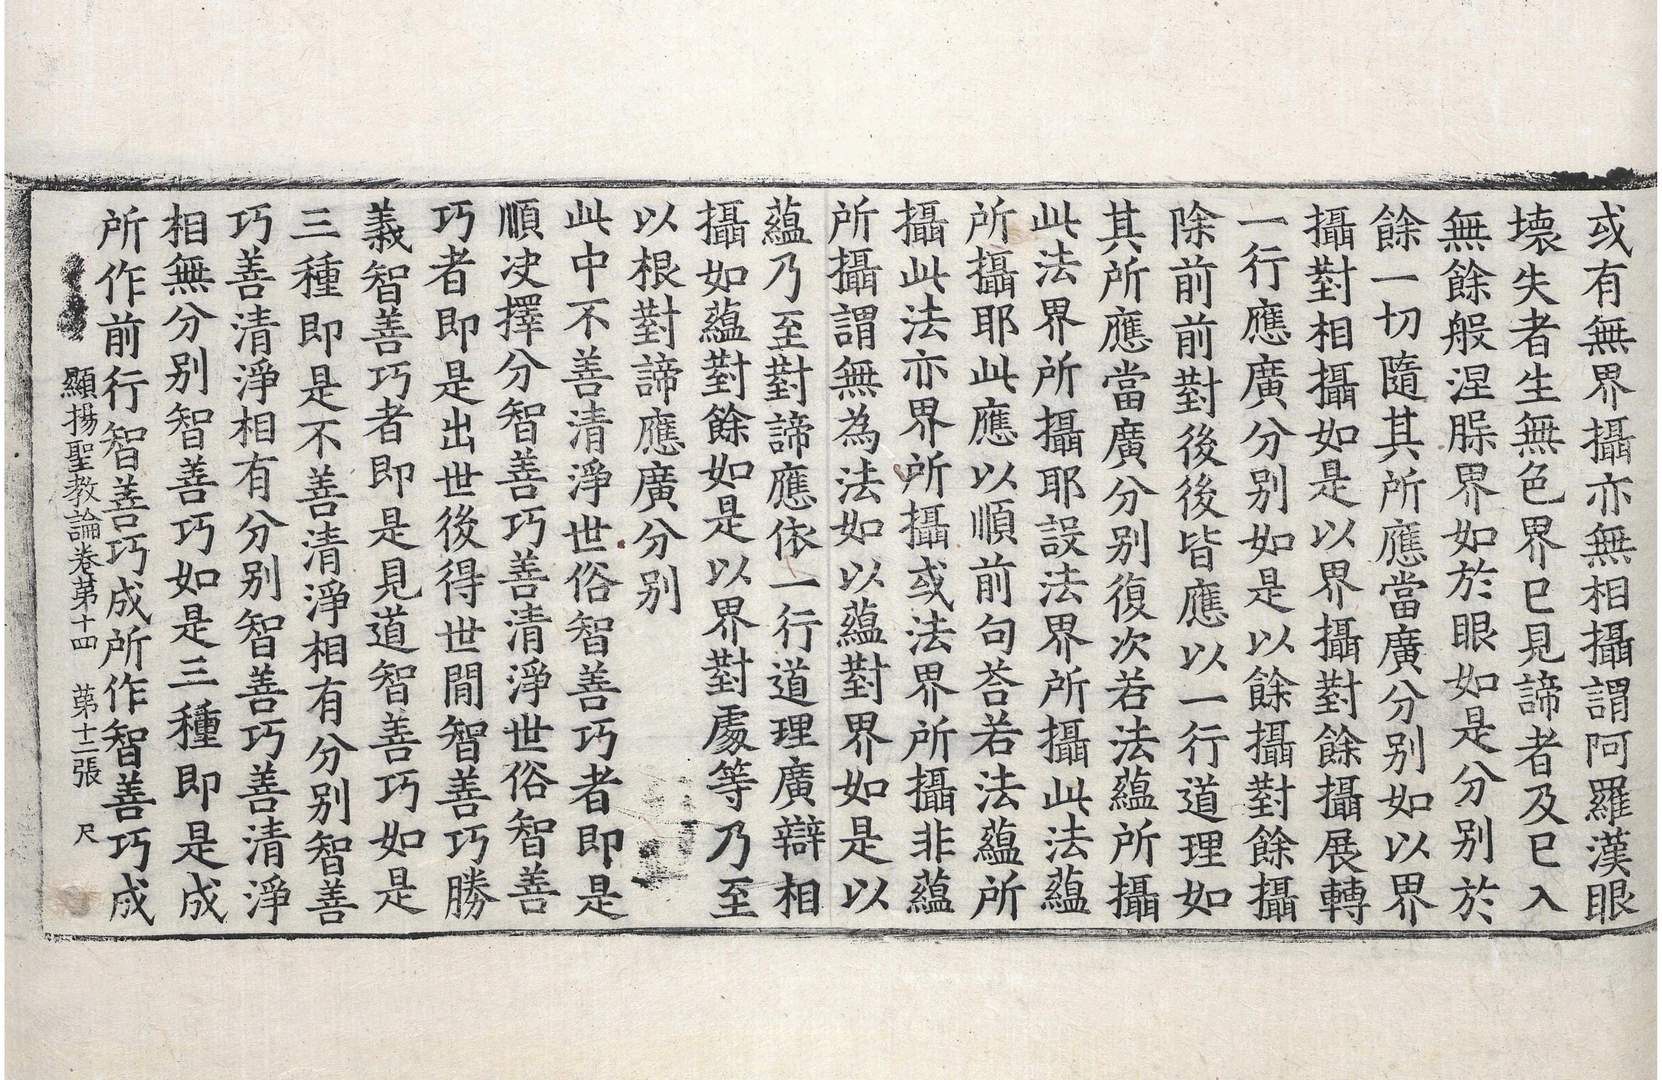 或有無界攝亦無相攝謂阿羅漢眼
壞失者生無色界已見諦者及已入
無餘般涅脲界如於眼如是分别於
餘一切隨其所應當廣分别如以界
攝對相攝如是以界攝對餘攝展轉
一行應廣分别如是以餘攝對餘攝
除前前對後後皆應以一行道理如
其所應當廣分别復次若法蘊所攝
此法界所攝耶設法界所攝此法蘊
所攝耶此應以順前句荅若法蘊所
攝此法亦界所攝或法界所攝非蘊
所攝謂無為法如以蘊對界如是以
蘊乃至對諦應依一行道理廣辯相
攝如蘊對餘如是以界對處等乃至
以根對諦應廣分别
此中不善清淨世俗智善巧者即是
順决擇分智善巧善清淨世俗智善
巧者即是出世後得世閒智善巧勝
義智善巧者即是見道智善巧如是
三種即是不善清淨相有分别智善
巧善清淨相有分别智善巧善清淨
相無分别智善巧如是三種即是成
所作前行智善巧成所作智善巧成
顯揚聖教論卷苐十四 苐十二張 尺